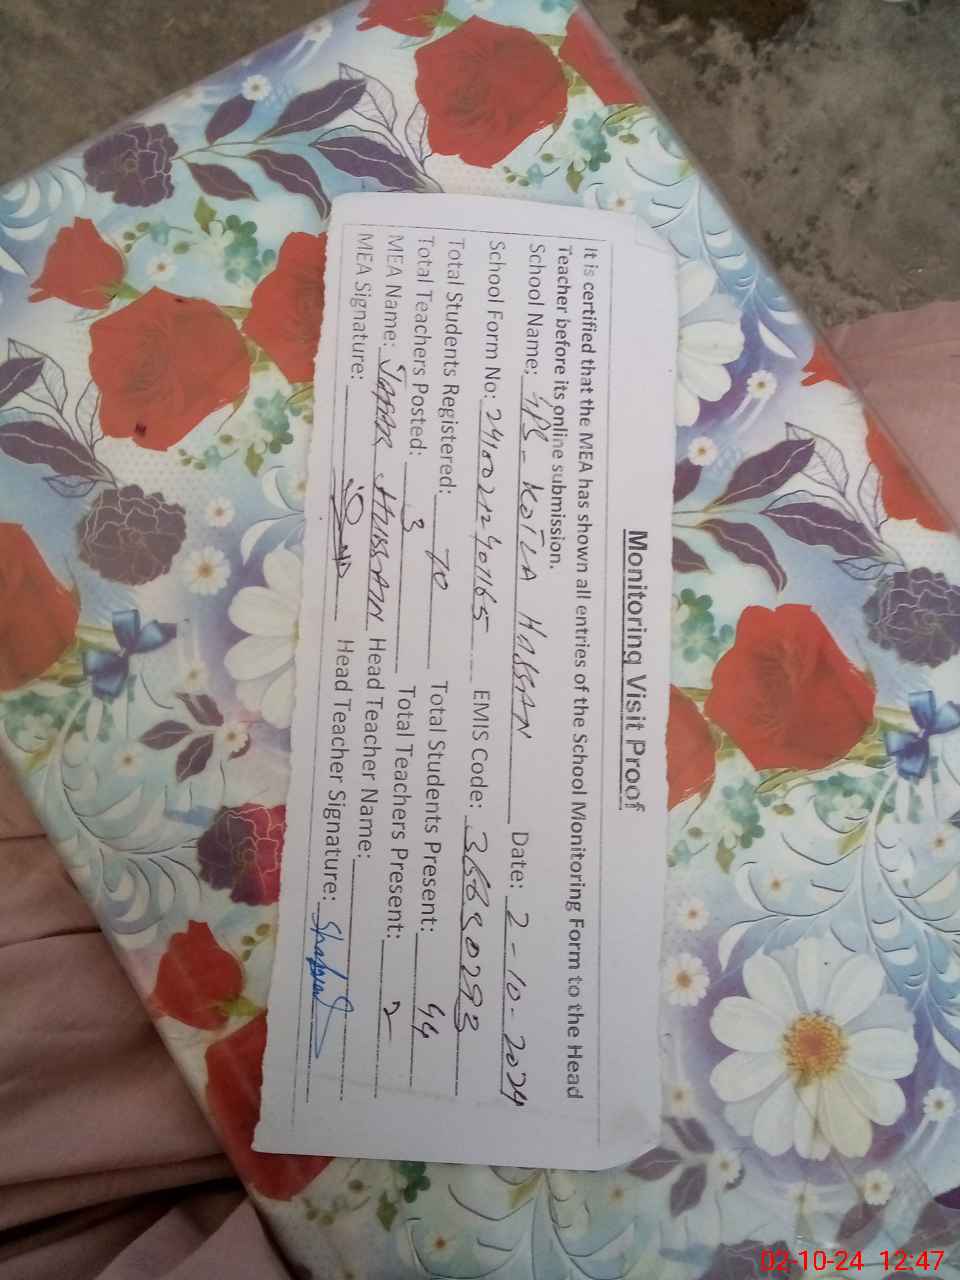 Monitoring Visit Proof
It is certified that the MEA has shown all entries of the School Monitoring Form to the Head
Teacher before its online submission.
School Name: GPS - KOTLA HASSAN Date: 2-10-2024
School Form No: EMIS Code:
Total Students Registered: 70 Total Students Present: 44
Total Teachers Posted: 3 Total Teachers Present: 2
MEA Name: JAFAR HUSSAIN Head Teacher Name:
MEA Signature: Head Teacher Signature:
02-10-24 12:47